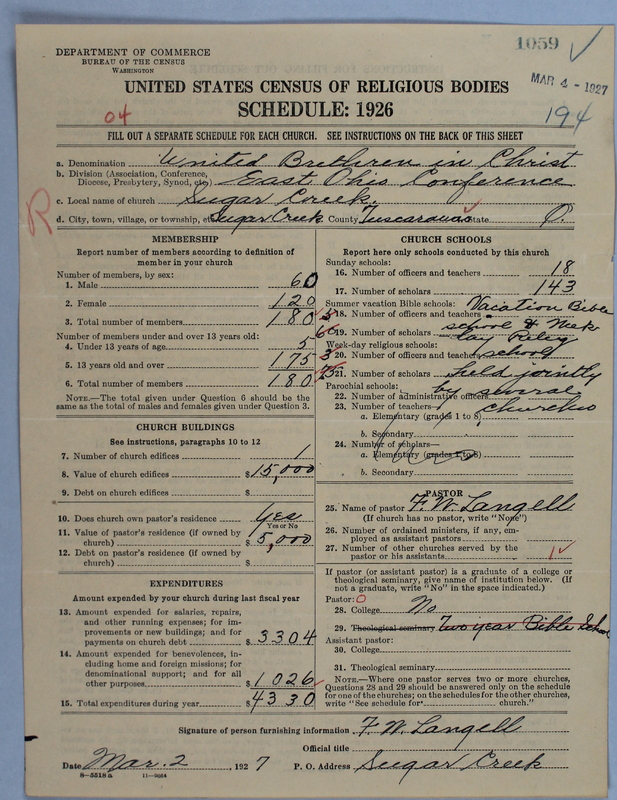 1059
MAR 4 - 1927
194
04
R
DEPARTMENT OF COMMERCE
BUREAU OF THE CENSUS
WASHINGTON
UNITED STATES CENSUS OF RELIGIOUS BODIES
SCHEDULE: 1926
FILL OUT A SEPARATE SCHEDULE FOR EACH CHURCH. SEE INSTRUCTIONS ON THE BACK OF THIS SHEET
a. Denomination United Brethren in Christ
b. Division (Association, Conference, Diocese, Presbytery, Synod, etc.) East Ohio Conference
c. Local name of church Sugar Creek.
d. City, town, village, or township, etc. Sugar Creek County Tuscarawas State O.
MEMBERSHIP
Report number of members according to definition of
member in your church
Number of members, by sex:
1. Male 60
2. Female 120
3. Total number of members 180
Number of members under and over 13 years old:
4. Under 13 years of age 5
5. 13 years old and over 175
6. Total number of members 180
NOTE.—The total given under Question 6 should be the
same as the total of males and females given under Question 3.
CHURCH BUILDINGS
See instructions, paragraphs 10 to 12
7. Number of church edifices 1
8. Value of church edifices $15,000
9. Debt on church edifices $
10. Does church own pastor's residence Yes
Yes or No
11. Value of pastor's residence (if owned by
church) $5,000
12. Debt on pastor's residence (if owned by
church) $
EXPENDITURES
Amount expended by your church during last fiscal year
13. Amount expended for salaries, repairs,
and other running expenses; for im-
provements or new buildings; and for
payments on church debt $3304
14. Amount expended for benevolences, in-
cluding home and foreign missions; for
denominational support; and for all
other purposes $1026
15. Total expenditures during year $4330
CHURCH SCHOOLS
Report here only schools conducted by this church
Sunday schools:
16. Number of officers and teachers 18
17. Number of scholars 143
Summer vacation Bible schools: Vacation Bible
18. Number of officers and teachers
19. Number of scholars school & Week
Week-day religious schools: day Relig
20. Number of officers and teachers schools
21. Number of scholars held jointly
Parochial schools: by several
22. Number of administrative officers
23. Number of teachers— churches
a. Elementary (grades 1 to 8)
b. Secondary
24. Number of scholars—
a. Elementary (grades 1 to 8)
b. Secondary
PASTOR
25. Name of pastor F. W. Langell
(If church has no pastor, write "None")
26. Number of ordained ministers, if any, em-
ployed as assistant pastors
27. Number of other churches served by the
pastor or his assistants 1
If pastor (or assistant pastor) is a graduate of a college or
theological seminary, give name of institution below. (If
not a graduate, write "No" in the space indicated.)
Pastor: 0
28. College No
29. Theological seminary Two year Bible School
Assistant pastor:
30. College
31. Theological seminary
NOTE.—Where one pastor serves two or more churches,
Questions 28 and 29 should be answered only on the schedule
for one of the churches; on the schedules for the other churches,
write "See schedule for church."
Signature of person furnishing information F. W. Langell
Official title
Date Mar. 2, 1927 P. O. Address Sugar Creek
8—5518 a 11—9064